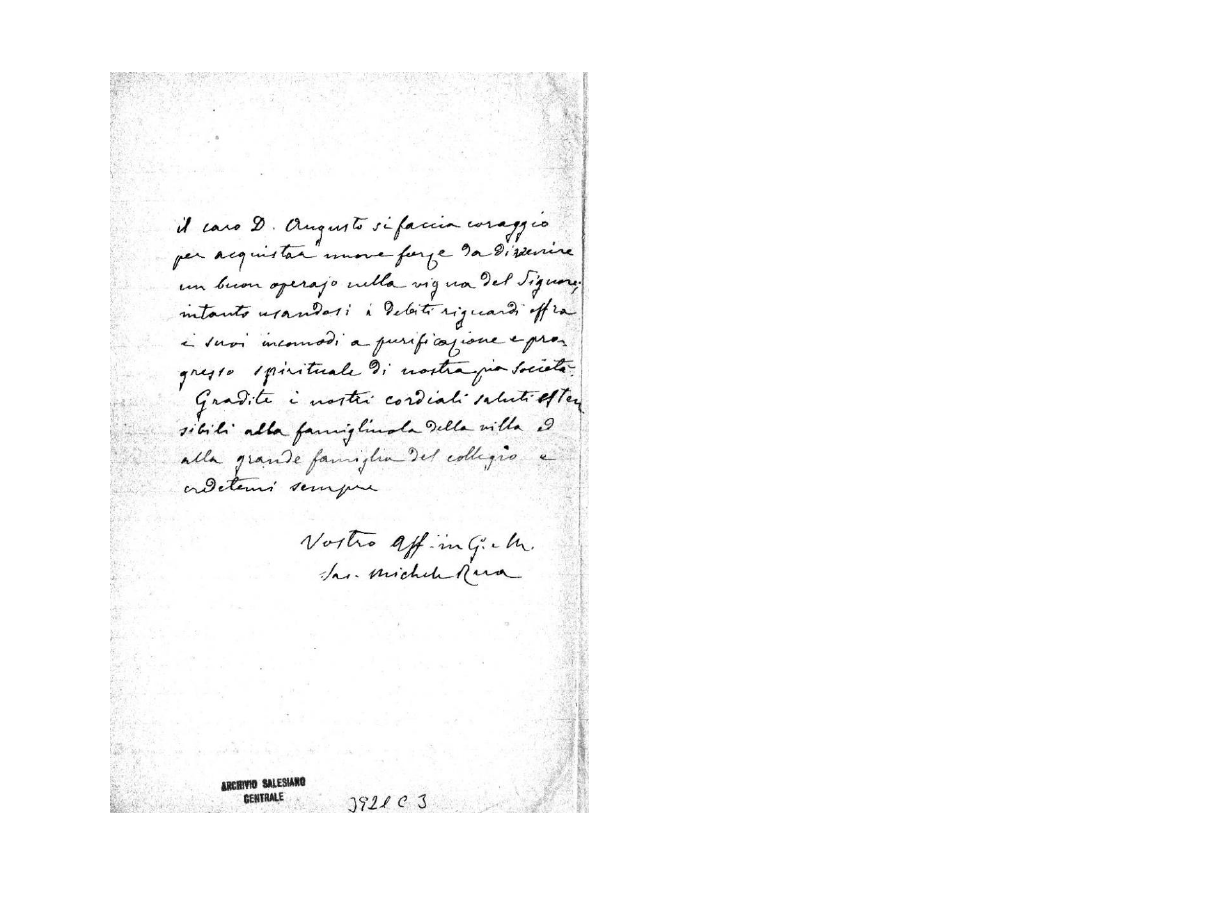 il caro D. Augusto si faccia coraggio
per acquistar nuove forze da divenire
un buon operajo nella vigna del Signore;
intanto usandosi i debiti riguardi offra
i suoi incomodi a purificazione e pro-
gresso spirituale di nostra pia società.
Gradite i nostri cordiali saluti esten
sibili alla famigliuola della villa ed
alla grande famiglia del collegio e
credetemi sempre
Vostro Aff. in G. e M.
Sac. Michele Rua
ARCHIVIO SALESIANO
CENTRALE
3921 C 3